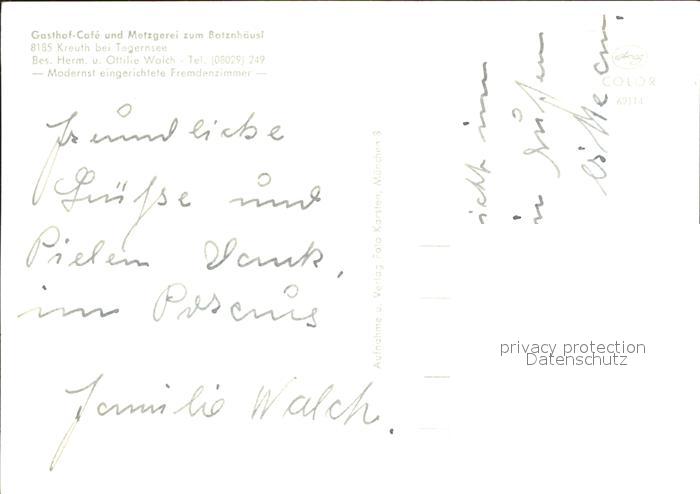 Gasthof-Café und Metzgerei zum Batznhäusl
8185 Kreuth bei Tegernsee
Bes. Herm. u. Ottilie Walch - Tel. (08029) 249
— Modernst eingerichtete Fremdenzimmer —
freundliche
Grüße und
Vielen Dank,
im Voraus
Familie Walch.
Aufnahme u. Verlag Foto Karsten, München 8
COLOR
in
privacy protection
Datenschutz